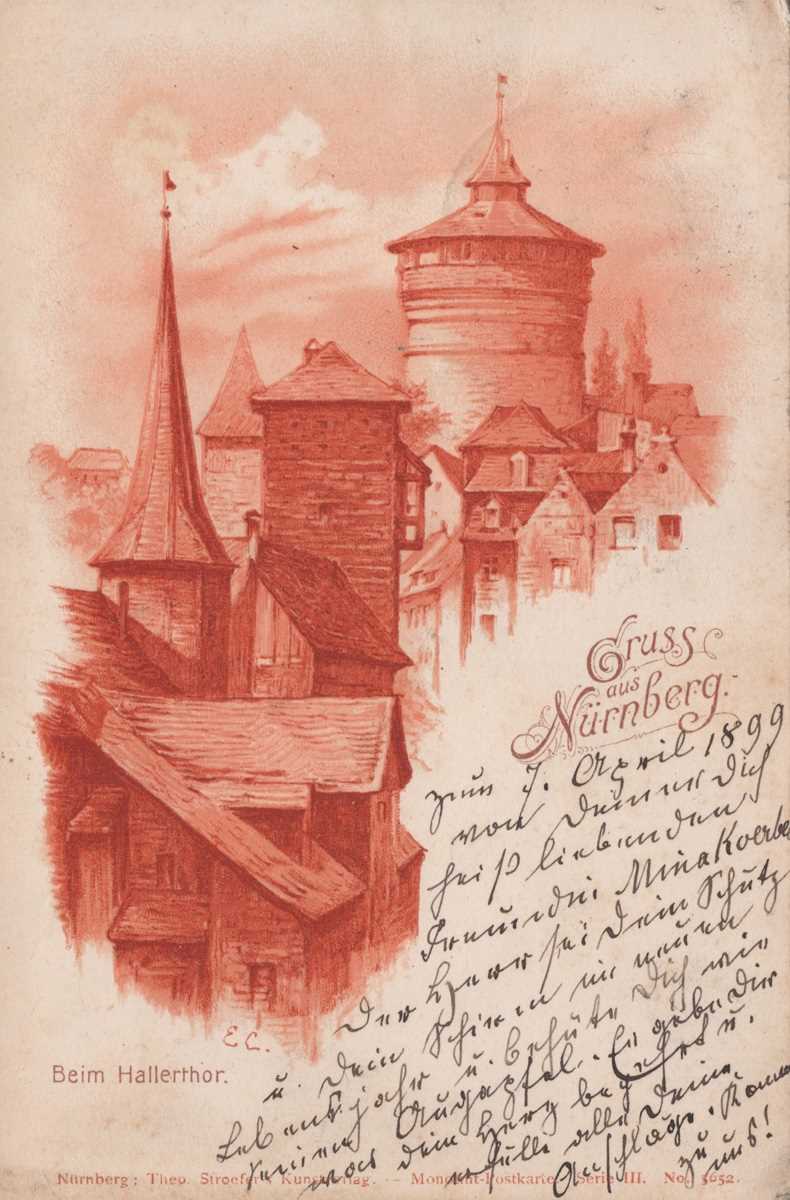 Gruss
aus
Nürnberg.
zum 7. April 1899
von Deiner Dich
heiß liebenden
Freundin Mina Koerber
Der Herr sei Dein Schutz
u. Dein Schirm im neuen
Lebensjahr u. behüte Dich wie
seinen Augapfel. Er gebe Dir
was dein Herz begehrt u.
erfülle alle Deine
Anschläge. Komm
zu
uns!
E C.
Beim Hallerthor.
Nürnberg: Theo. Stroefer's Kunstverlag. — Monument-Postkarte. Serie III. No. 5652.